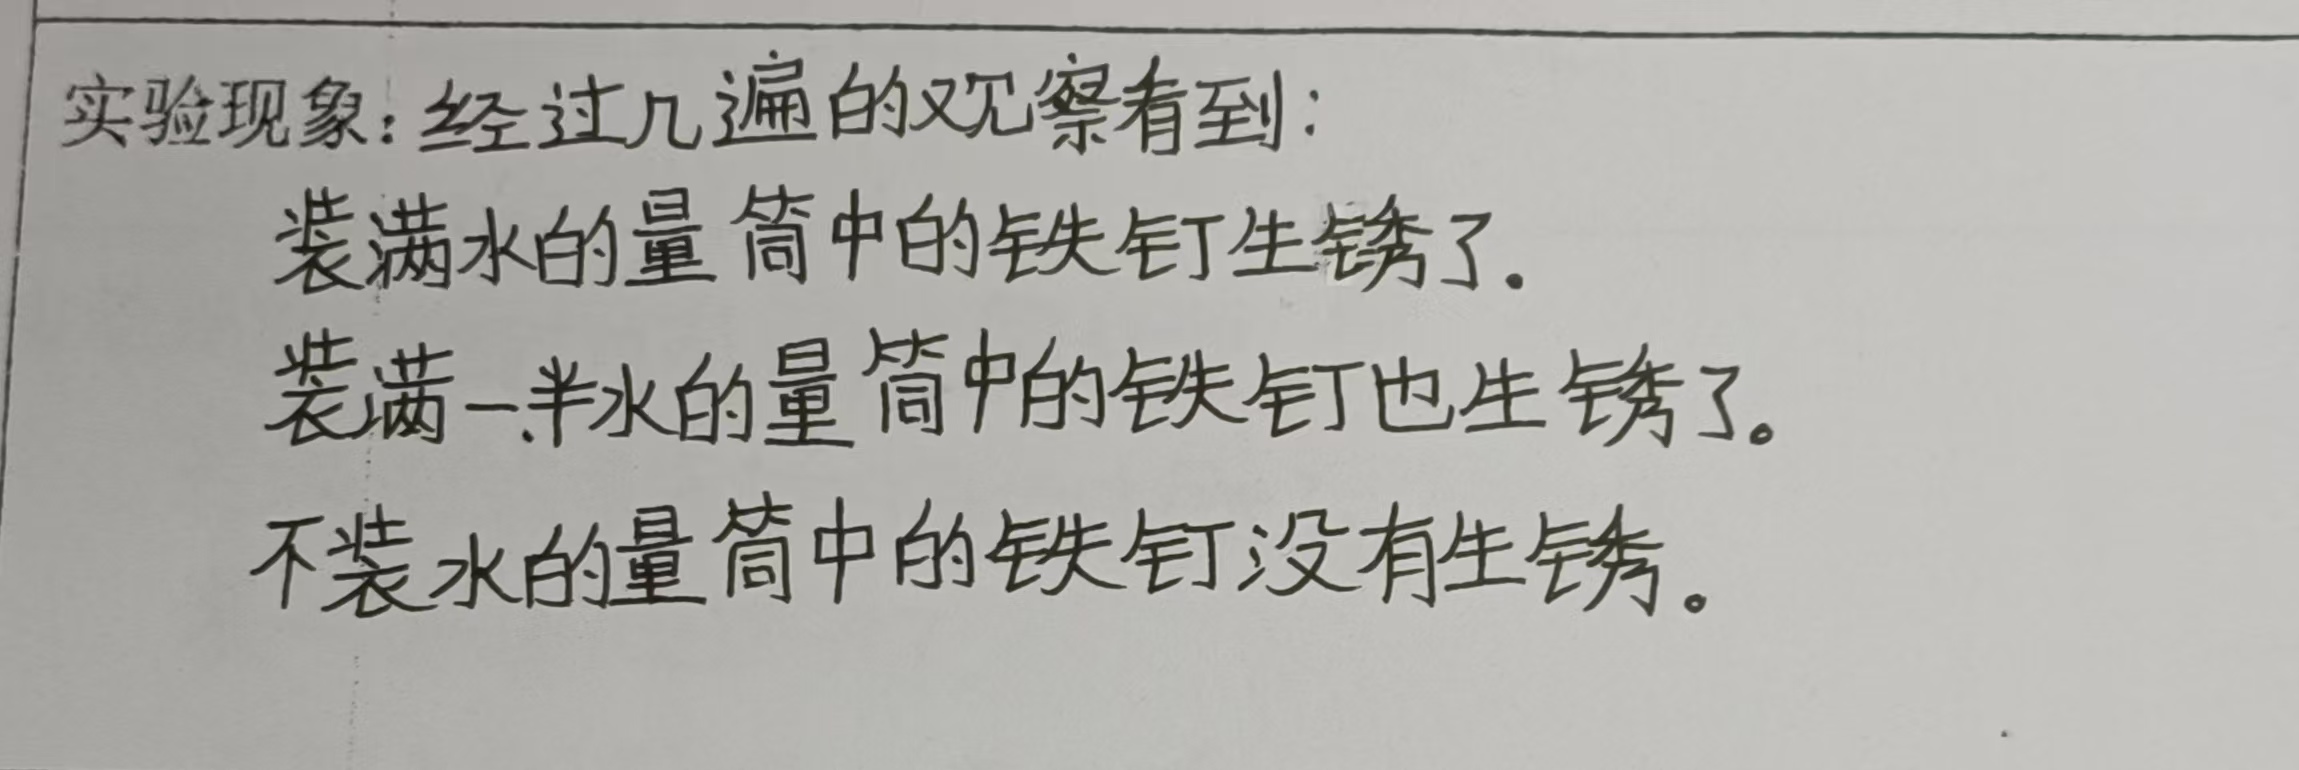 实验现象：经过几遍的观察看到：
装满水的量筒中的铁钉生锈了.
装满一半水的量筒中的铁钉也生锈了。
不装水的量筒中的铁钉没有生锈。